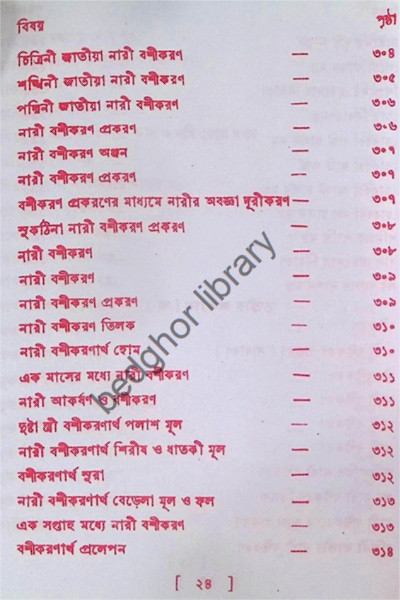 বিষয় পৃষ্ঠা
চিত্রিনী জাতীয়া নারী বশীকরণ — ৩০৪
শঙ্খিনী জাতীয়া নারী বশীকরণ — ৩০৫
পদ্মিনী জাতীয়া নারী বশীকরণ — ৩০৬
নারী বশীকরণ প্রকরণ — ৩০৬
নারী বশীকরণ অঞ্জন — ৩০৭
নারী বশীকরণ প্রকরণ — ৩০৭
বশীকরণ প্রকরণের মাধ্যমে নারীর অবজ্ঞা দূরীকরণ — ৩০৭
সুকঠিনা নারী বশীকরণ প্রকরণ — ৩০৮
নারী বশীকরণ — ৩০৮
নারী বশীকরণ — ৩০৯
নারী বশীকরণ প্রকরণ — ৩০৯
নারী বশীকরণ তিলক — ৩১০
নারী বশীকরণার্থ হোম — ৩১০
এক মাসের মধ্যে নারী বশীকরণ — ৩১১
নারী আকর্ষণ ও বশীকরণ — ৩১১
দুষ্টা স্ত্রী বশীকরণার্থ পলাশ মূল — ৩১২
নারী বশীকরণার্থ শিরীষ ও ধাতকী মূল — ৩১২
বশীকরণার্থ সুরা — ৩১২
নারী বশীকরণার্থ বেড়েলা মূল ও ফল — ৩১৩
এক সপ্তাহ মধ্যে নারী বশীকরণ — ৩১৩
বশীকরণার্থ প্রলেপন — ৩১৪
[ ২৪ ]
bedghor library